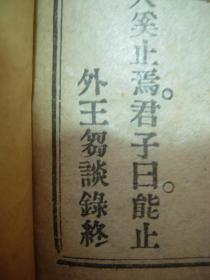 奚止焉。君子曰。能止
外王芻談錄終